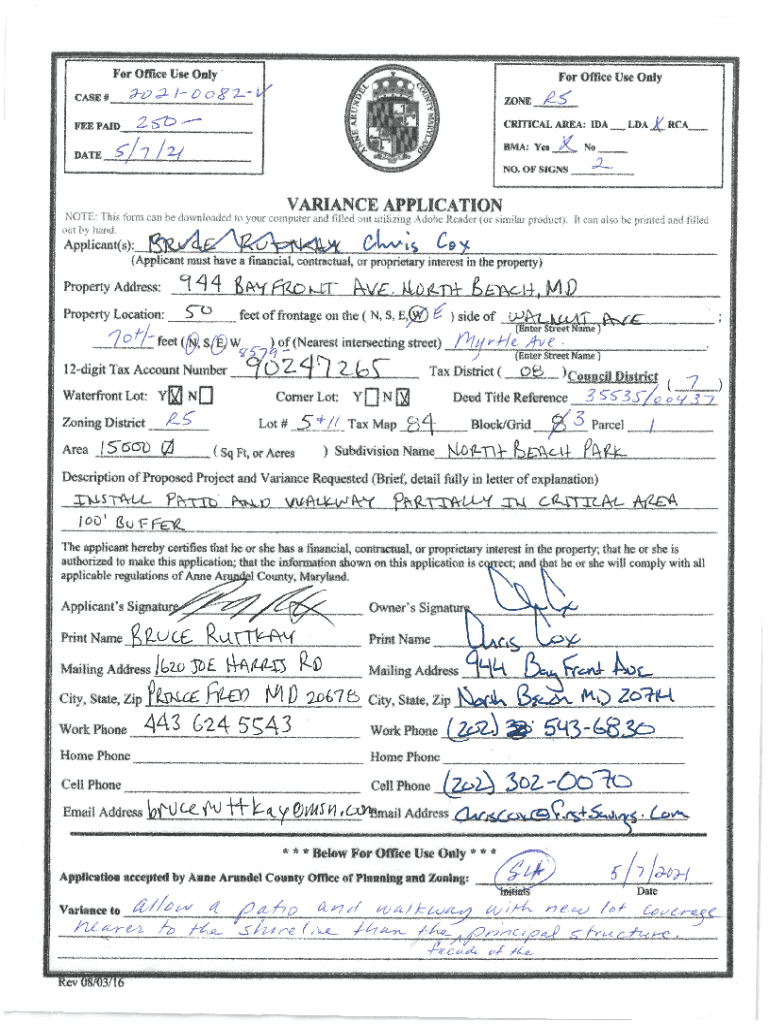 For Office Use Only
CASE # 2021-0082-V
FEE PAID 250 —
DATE 5/7/21
ANNE ARUNDEL COUNTY MARYLAND
For Office Use Only
ZONE R5
CRITICAL AREA: IDA ___ LDA X RCA ___
BMA: Yes X No ___
NO. OF SIGNS 2
VARIANCE APPLICATION
NOTE: This form can be downloaded to your computer and filled out utilizing Adobe Reader (or similar product). It can also be printed and filled
out by hand.
Applicant(s): BRUCE RUTTKAY Chris Cox
(Applicant must have a financial, contractual, or proprietary interest in the property)
Property Address: 944 BAY FRONT AVE. NORTH BEACH, MD
Property Location: 50 feet of frontage on the ( N, S, E, W E ) side of WALNUT AVE ;
(Enter Street Name )
70+/- feet ( N, S, E, W ) of (Nearest intersecting street) Myrtle Ave.
(Enter Street Name )
8579-
12-digit Tax Account Number 90247265 Tax District ( 08 ) Council District ( 7 )
Waterfront Lot: Y X N Corner Lot: Y N X Deed Title Reference 35535/00437
Zoning District R5 Lot # 5+11 Tax Map 84 Block/Grid 3 Parcel 1
Area 15000 ( Sq Ft, or Acres ) Subdivision Name NORTH BEACH PARK
Description of Proposed Project and Variance Requested (Brief, detail fully in letter of explanation)
INSTALL PATIO AND WALKWAY PARTIALLY IN CRITICAL AREA
100' BUFFER
The applicant hereby certifies that he or she has a financial, contractual, or proprietary interest in the property; that he or she is
authorized to make this application; that the information shown on this application is correct; and that he or she will comply with all
applicable regulations of Anne Arundel County, Maryland.
Applicant's Signature
Owner's Signature
Print Name BRUCE RUTTKAY
Print Name Chris Cox
Mailing Address 1620 JOE HARRIS RD
Mailing Address 944 Bay Front Ave
City, State, Zip PRINCE FRED MD 20678
City, State, Zip North Beach MD 20714
Work Phone 443 624 5543
Work Phone (202) 543-6830
Home Phone
Home Phone
Cell Phone
Cell Phone (202) 302-0070
Email Address bruceruttkay@msn.com
Email Address chriscox@firstswings.com
* * * Below For Office Use Only * * *
Application accepted by Anne Arundel County Office of Planning and Zoning: 5/7/2021
Initials Date
Variance to allow a patio and walkway with new lot coverage
nearer to the shoreline than the principal structure.
facade of the
Rev 08/03/16